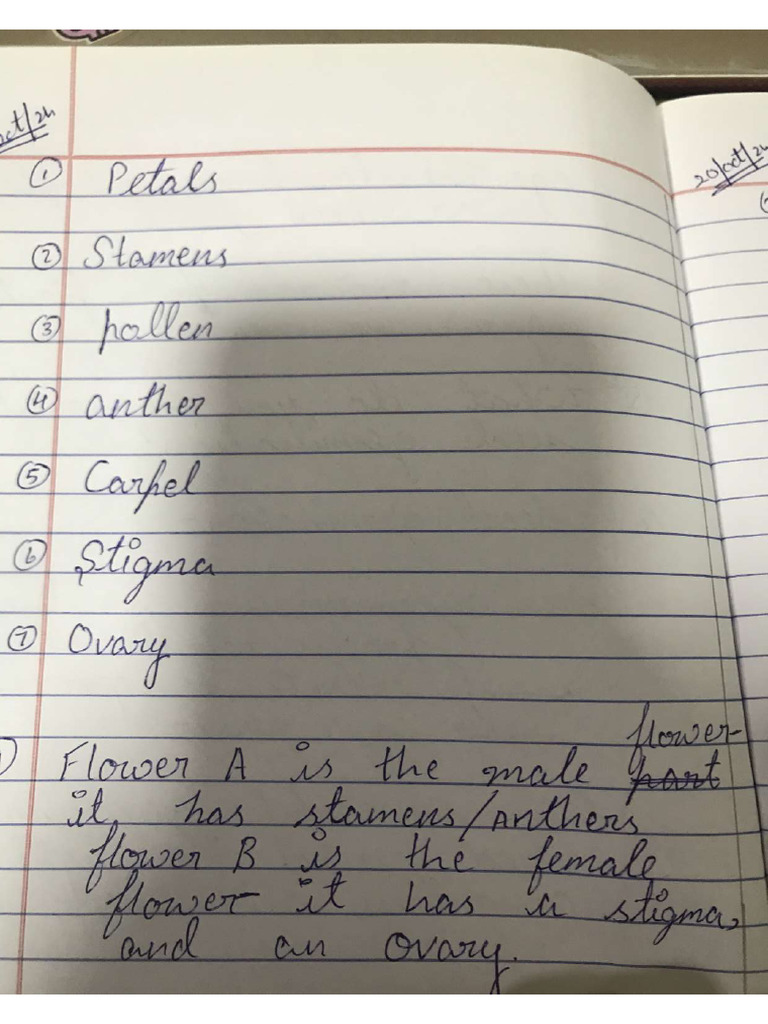 oct/24
① Petals
② Stamens
③ pollen
④ anther
⑤ Carpel
⑥ Stigma
⑦ Ovary
flower
Flower A is the male part
it has stamens/Anthers
flower B is the female
flower it has a stigma,
and an ovary.
20/oct/24